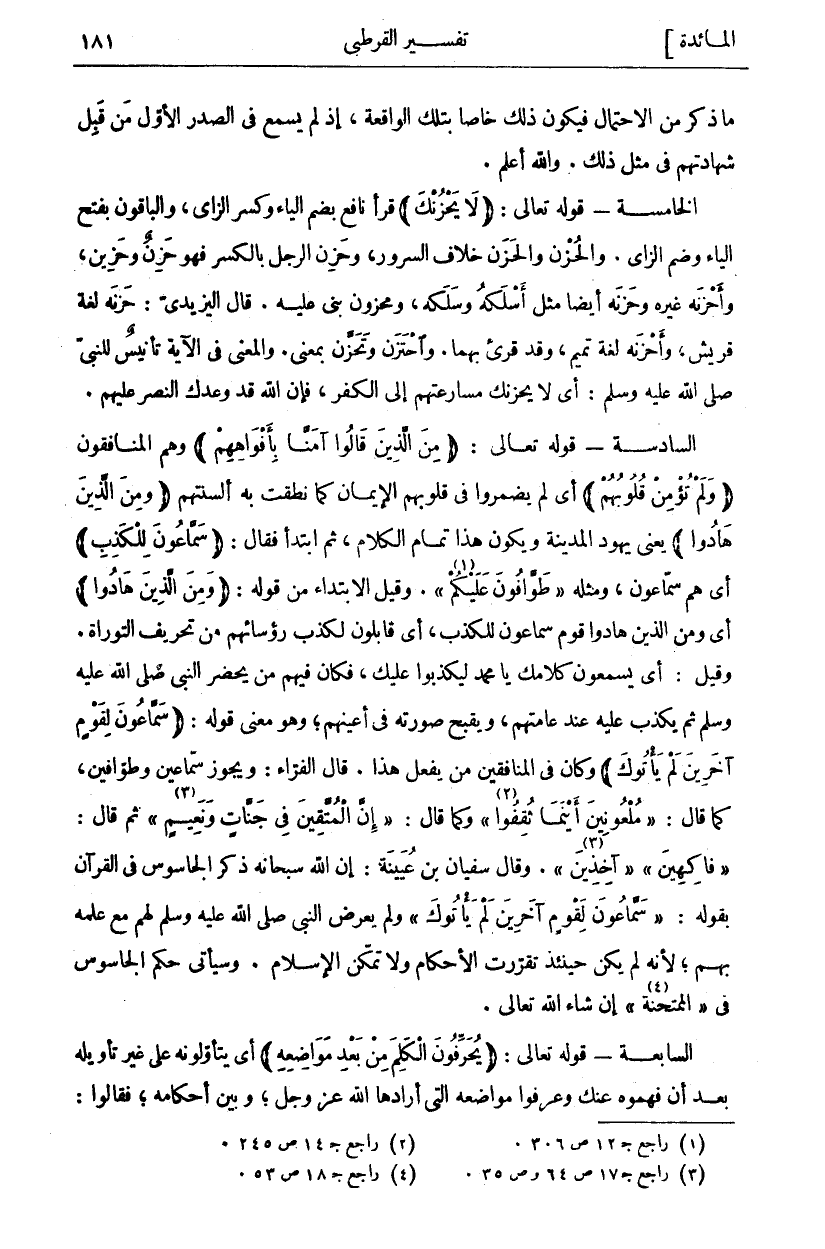 المائدة ] تفسير القرطبى ١٨١
ما ذكر من الاحتمال فيكون ذلك خاصا بتلك الواقعة ، إذ لم يسمع فى الصدر الأوّل مَن قَبِل
شهادتهم فى مثل ذلك . والله أعلم .
الخامسة — قوله تعالى : ﴿ لَا يَحْزُنْكَ ﴾ قرأ نافع بضم الياء وكسر الزاى ، والباقون بفتح
الياء وضم الزاى . والحُزْن والحَزَن خلاف السرور، وحَزِن الرجل بالكسر فهو حَزِنٌ وحَزِين ،
وأَحْزَنَه غيره وحَزَنَه أيضا مثل أَسْلَكهُ وسَلَكه ، ومحزون بنى عليه . قال اليزيدىّ : حَزَنه لغة
قريش ، وأَحْزَنه لغة تميم ، وقد قرئ بهما. وٱحْتَزَن وتَحَزَّن بمعنى. والمعنى فى الآية تأنيسٌ للنبىّ
صلى الله عليه وسلم : أى لا يحزنك مسارعتهم إلى الكفر ، فإن الله قد وعدك النصر عليهم .
السادسة — قوله تعالى : ﴿ مِنَ الَّذِينَ قَالُوا آمَنَّا بِأَفْوَاهِهِمْ ﴾ وهم المنافقون
﴿ وَلَمْ تُؤْمِنْ قُلُوبُهُمْ ﴾ أى لم يضمروا فى قلوبهم الإيمان كما نطقت به ألسنتهم ﴿ ومِنَ الَّذِينَ
هَادُوا ﴾ يعنى يهود المدينة ويكون هذا تمام الكلام ، ثم ابتدأ فقال : ﴿ سَمَّاعُونَ لِلْكَذِبِ ﴾
أى هم سمّاعون ، ومثله « طَوَّافُونَ عَلَيْكُمْ (١) » . وقيل الابتداء من قوله : ﴿ وَمِنَ الَّذِينَ هَادُوا ﴾
أى ومن الذين هادوا قوم سماعون للكذب ، أى قابلون لكذب رؤسائهم من تحريف التوراة .
وقيل : أى يسمعون كلامك يا محمد ليكذبوا عليك ، فكان فيهم من يحضر النبى صلى الله عليه
وسلم ثم يكذب عليه عند عامتهم ، ويقبح صورته فى أعينهم ؛ وهو معنى قوله : ﴿ سَمَّاعُونَ لِقَوْمٍ
آخَرِينَ لَمْ يَأْتُوكَ ﴾ وكان فى المنافقين من يفعل هذا . قال الفرّاء : ويجوز سمّاعين وطوّافين ،
كما قال : « مَلْعُونِينَ أَيْنَمَا ثُقِفُوا (٢) » وكما قال : « إِنَّ الْمُتَّقِينَ فِى جَنَّاتٍ وَنَعِيمٍ (٣) » ثم قال :
« فاكِهِينَ » « آخِذِينَ (٣) » . وقال سفيان بن عُيَينَة : إن الله سبحانه ذكر الجاسوس فى القرآن
بقوله : « سَمَّاعُونَ لِقَوْمٍ آخَرِينَ لَمْ يَأْتُوكَ » ولم يعرض النبى صلى الله عليه وسلم لهم مع علمه
بهم ؛ لأنه لم يكن حينئذ تقرّرت الأحكام ولا تمكّن الإسلام . وسيأتى حكم الجاسوس
فى « الممتحنة (٤) » إن شاء الله تعالى .
السابعة — قوله تعالى : ﴿ يُحَرِّفُونَ الْكَلِمَ مِنْ بَعْدِ مَوَاضِعِهِ ﴾ أى يتأوّلونه على غير تأويله
بعد أن فهموه عنك وعرفوا مواضعه التى أرادها الله عز وجل ؛ وبين أحكامه ؛ فقالوا :
(١) راجع جـ ١٢ ص ٣٠٦ . (٢) راجع جـ ١٤ ص ٢٤٥ .
(٣) راجع جـ ١٧ ص ٦٤ و ص ٣٥ . (٤) راجع جـ ١٨ ص ٥٣ .